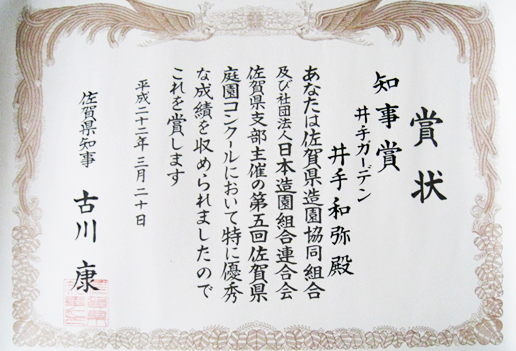 賞状
知事賞
井手ガーデン
井手和弥殿
あなたは佐賀県造園協同組合
及び社団法人日本造園組合連合会
佐賀県支部主催の第五回佐賀県
庭園コンクールにおいて特に優秀
な成績を収められましたので
これを賞します
平成二十二年三月二十日
佐賀県知事
古川康